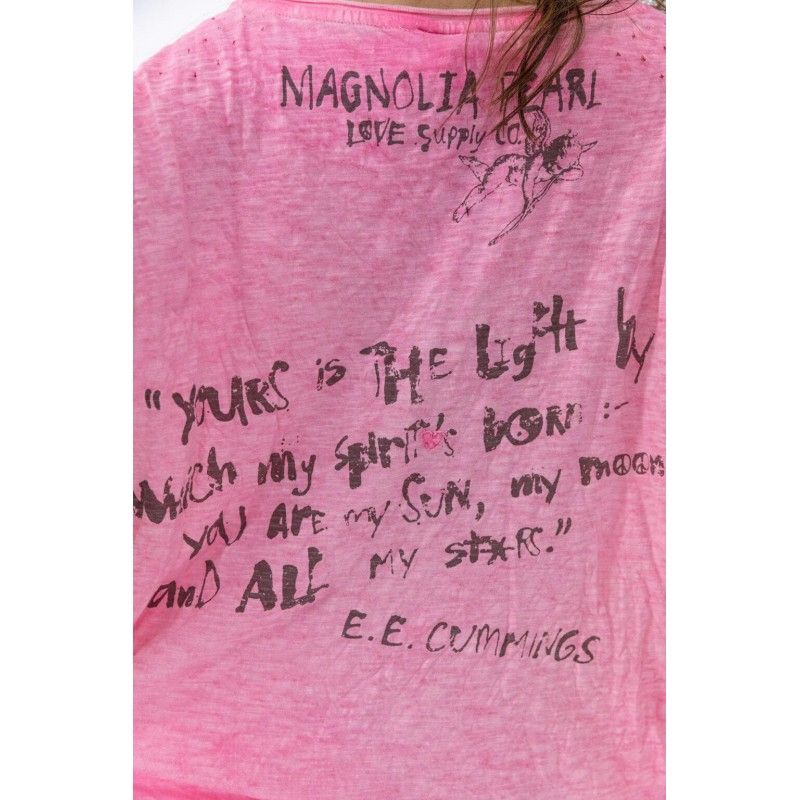 MAGNOLIA PEARL
LOVE Supply CO.
"YOURS is THE Light by
which my spirit's BORN :-
you ARE my SUN, my moon,
and ALL my STARS."
E.E. CUMMINGS